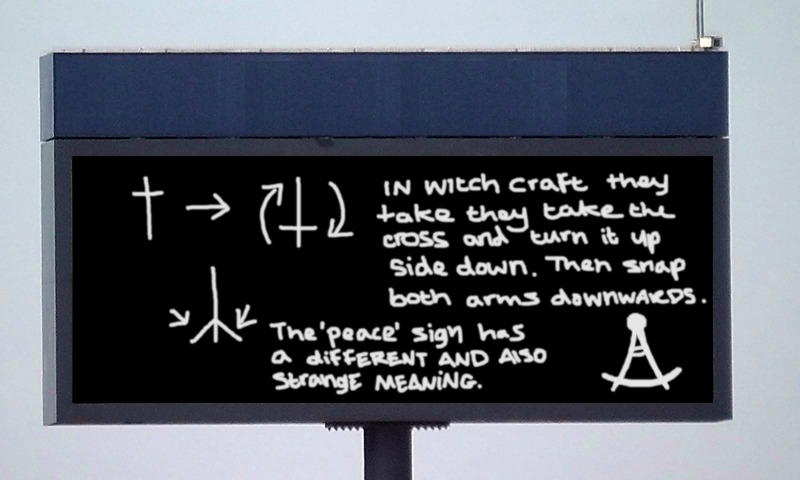 IN witch craft they
take they take the
cross and turn it up
side down. Then snap
both arms downwards.
The 'peace' sign has
a different AND Also
Strange MEANING.